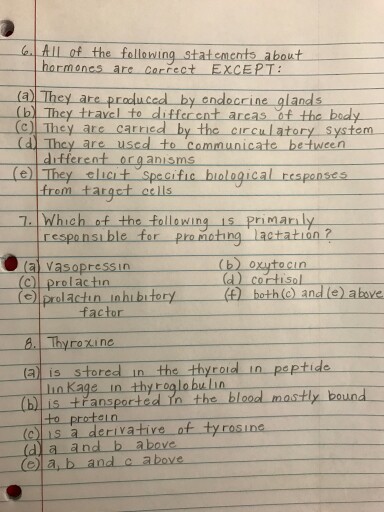 6. All of the following statements about
hormones are correct EXCEPT:
(a) They are produced by endocrine glands
(b) They travel to different areas of the body
(c) They are carried by the circulatory system
(d) They are used to communicate between
different organisms
(e) They elicit specific biological responses
from target cells
7. Which of the following is primarily
responsible for promoting lactation?
(a) vasopressin (b) oxytocin
(c) prolactin (d) cortisol
(e) prolactin inhibitory (f) both (c) and (e) above
factor
8. Thyroxine
(a) is stored in the thyroid in peptide
linkage in thyroglobulin
(b) is transported in the blood mostly bound
to protein
(c) is a derivative of tyrosine
(d) a and b above
(e) a, b and c above